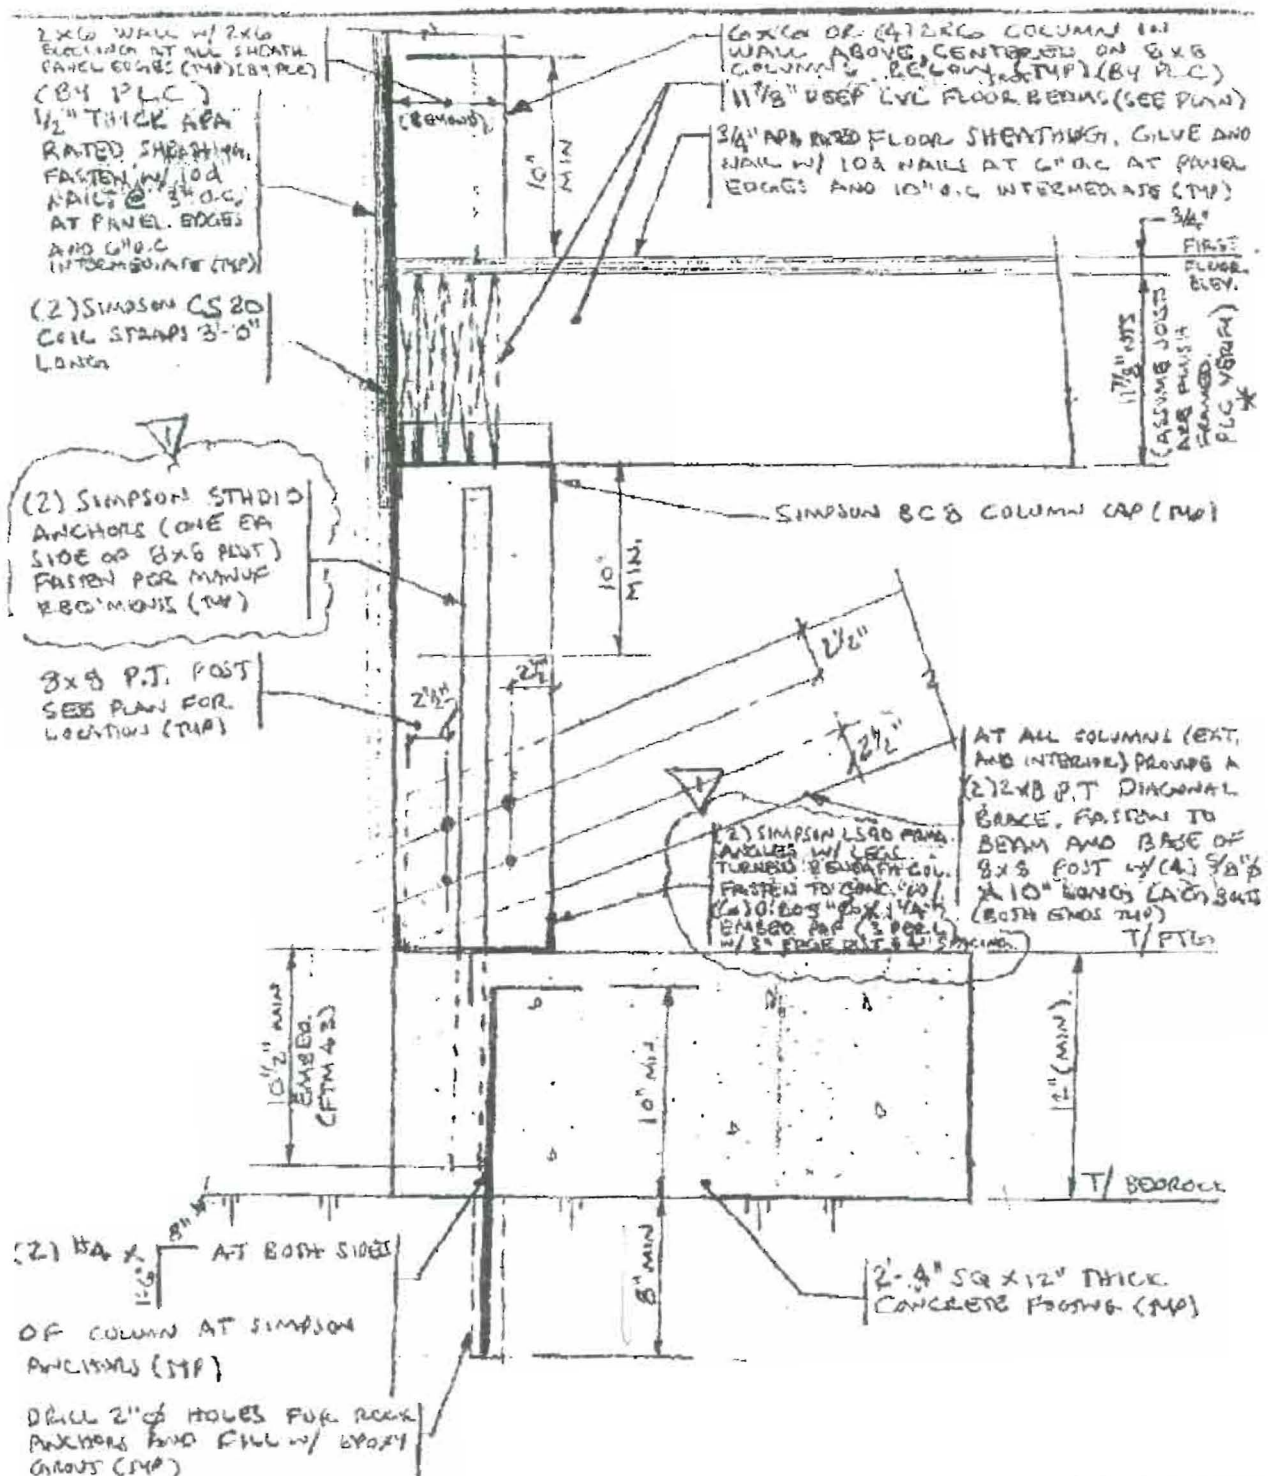 2x6 WALL W/ 2x6
AT ALL SHEATH
PANEL EDGES (TYP) (BY PLC)
(BY P.L.C)
1/2" THICK APA
RATED SHEATHING,
FASTEN W/ 10d
NAILS @ 3" O.C.
AT PANEL EDGES
AND 6" O.C
INTERMEDIATE (TYP)
(2) SIMPSON CS20
COIL STRAPS 3'-0"
LONG
1
(2) SIMPSON STHD10
ANCHORS (ONE EA
SIDE OF 8x8 POST)
FASTEN PER MANUF
REQ'MENTS (TYP)
8x8 P.T. POST
SEE PLAN FOR
LOCATION (TYP)
6x6 OR (4) 2x6 COLUMN IN
WALL ABOVE, CENTERED ON 8x8
COLUMNS BELOW (TYP) (BY P.L.C)
11 7/8" DEEP LVL FLOOR BEAMS (SEE PLAN)
3/4" APA RATED FLOOR SHEATHING, GLUE AND
NAIL W/ 10d NAILS AT 6" O.C AT PANEL
EDGES AND 10" O.C INTERMEDIATE (TYP)
(BEYOND)
10"
MIN
3/4"
FIRST
FLOOR
ELEV.
11 7/8" NTS
(ASSUME JOISTS
ARE FLUSH
FRAMED.
PLC VERIFY)
*
SIMPSON BC8 COLUMN CAP (TYP)
10"
MIN.
2 1/2"
2 1/2"
2 1/2"
2 1/2"
AT ALL COLUMNS (EXT.
AND INTERIOR) PROVIDE A
(2) 2x8 P.T DIAGONAL
BRACE. FASTEN TO
BEAM AND BASE OF
8x8 POST W/ (4) 5/8"Ø
x 10" LONG LAG BOLTS
(BOTH ENDS TYP)
1
(2) SIMPSON LS90
ANGLES W/ LEGS
TURNED BENEATH COL.
FASTEN TO CONC. W/
EMBED PAF (3 PER L)
W/ 3" EDGE DIST & 4" SPACING
T/FTG
10 1/2" MIN
EMBED.
10" MIN
12" (MIN)
T/ BEDROCK
8" MIN
(2) #4 x
8"
1'-6"
AT BOTH SIDES
OF COLUMN AT SIMPSON
ANCHORS (TYP)
2'-4" SQ x 12" THICK
CONCRETE FOOTING (TYP)
DRILL 2"Ø HOLES FOR ROCK
ANCHORS AND FILL W/ EPOXY
GROUT (TYP)